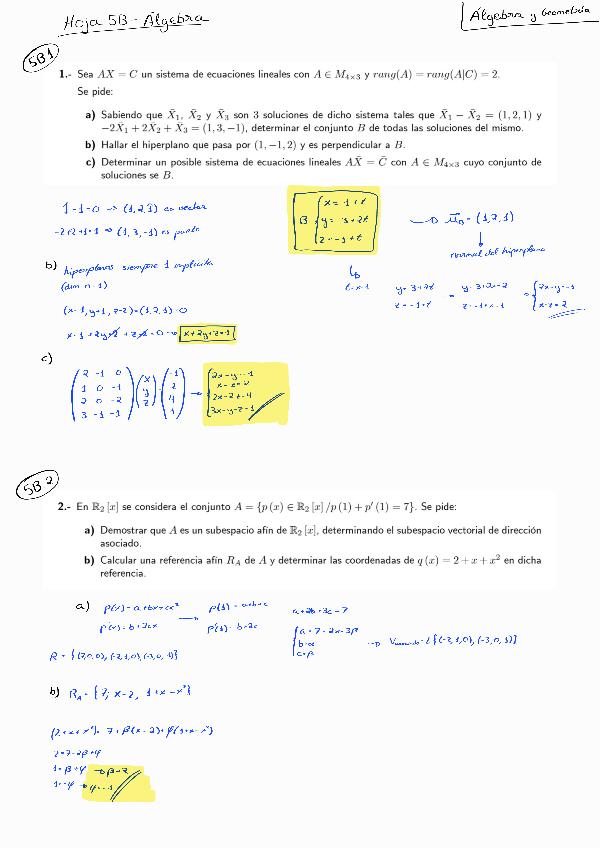 Hoja 5B - Álgebra
Álgebra y Geometría
5B1
1.- Sea AX = C un sistema de ecuaciones lineales con A ∈ M₄ₓ₃ y rang(A) = rang(A|C) = 2.
Se pide:
a) Sabiendo que X̄₁, X̄₂ y X̄₃ son 3 soluciones de dicho sistema tales que X̄₁ − X̄₂ = (1, 2, 1) y
−2X̄₁ + 2X̄₂ + X̄₃ = (1, 3, −1), determinar el conjunto B de todas las soluciones del mismo.
b) Hallar el hiperplano que pasa por (1, −1, 2) y es perpendicular a B.
c) Determinar un posible sistema de ecuaciones lineales AX̄ = C̄ con A ∈ M₄ₓ₃ cuyo conjunto de
soluciones se B.
1-1=0 → (1,2,1) es vector
-2+2+1=1 ⇒ (1,3,-1) es punto
B { x = 1+t
y = 3+2t
z = -1+t
(1,2,1)
normal del hiperplano
t=x-1
y=3+2t
z=-1+t
= y=3+2x-2
z=-1+x-1
= { 2x-y=-1
x-z=2
b) hiperplanos siempre 1 implícita
(dim n-1)
(x-1, y+1, z-2)·(1,2,1)=0
x-1+2y+2+z-2=0 → x+2y+z=1
c)
2 -1 0
1 0 -1
2 0 -2
3 -1 -1
x
y
z
-1
2
4
1
→ { 2x-y=-1
x-z=2
2x-2z=4
3x-y-z=1
5B2
2.- En ℝ₂[x] se considera el conjunto A = {p(x) ∈ ℝ₂[x] / p(1) + p′(1) = 7}. Se pide:
a) Demostrar que A es un subespacio afín de ℝ₂[x], determinando el subespacio vectorial de dirección
asociado.
b) Calcular una referencia afín R_A de A y determinar las coordenadas de q(x) = 2 + x + x² en dicha
referencia.
a) p(x)=a+bx+cx²
p'(x)=b+2cx
→ p(1)=a+b+c
p'(1)=b+2c
a+2b+3c=7
{ a=7-2α-3β
b=α
c=β
{(-2,1,0), (-3,0,1)}
R={(7,0,0), (-2,1,0), (-3,0,1)}
b) R_A={7; x-2, 1+x-x²}
7+β(x-2)+φ(1+x-x²)
2=7-2β+φ
1=β+φ → β=2
1=-φ → φ=-1